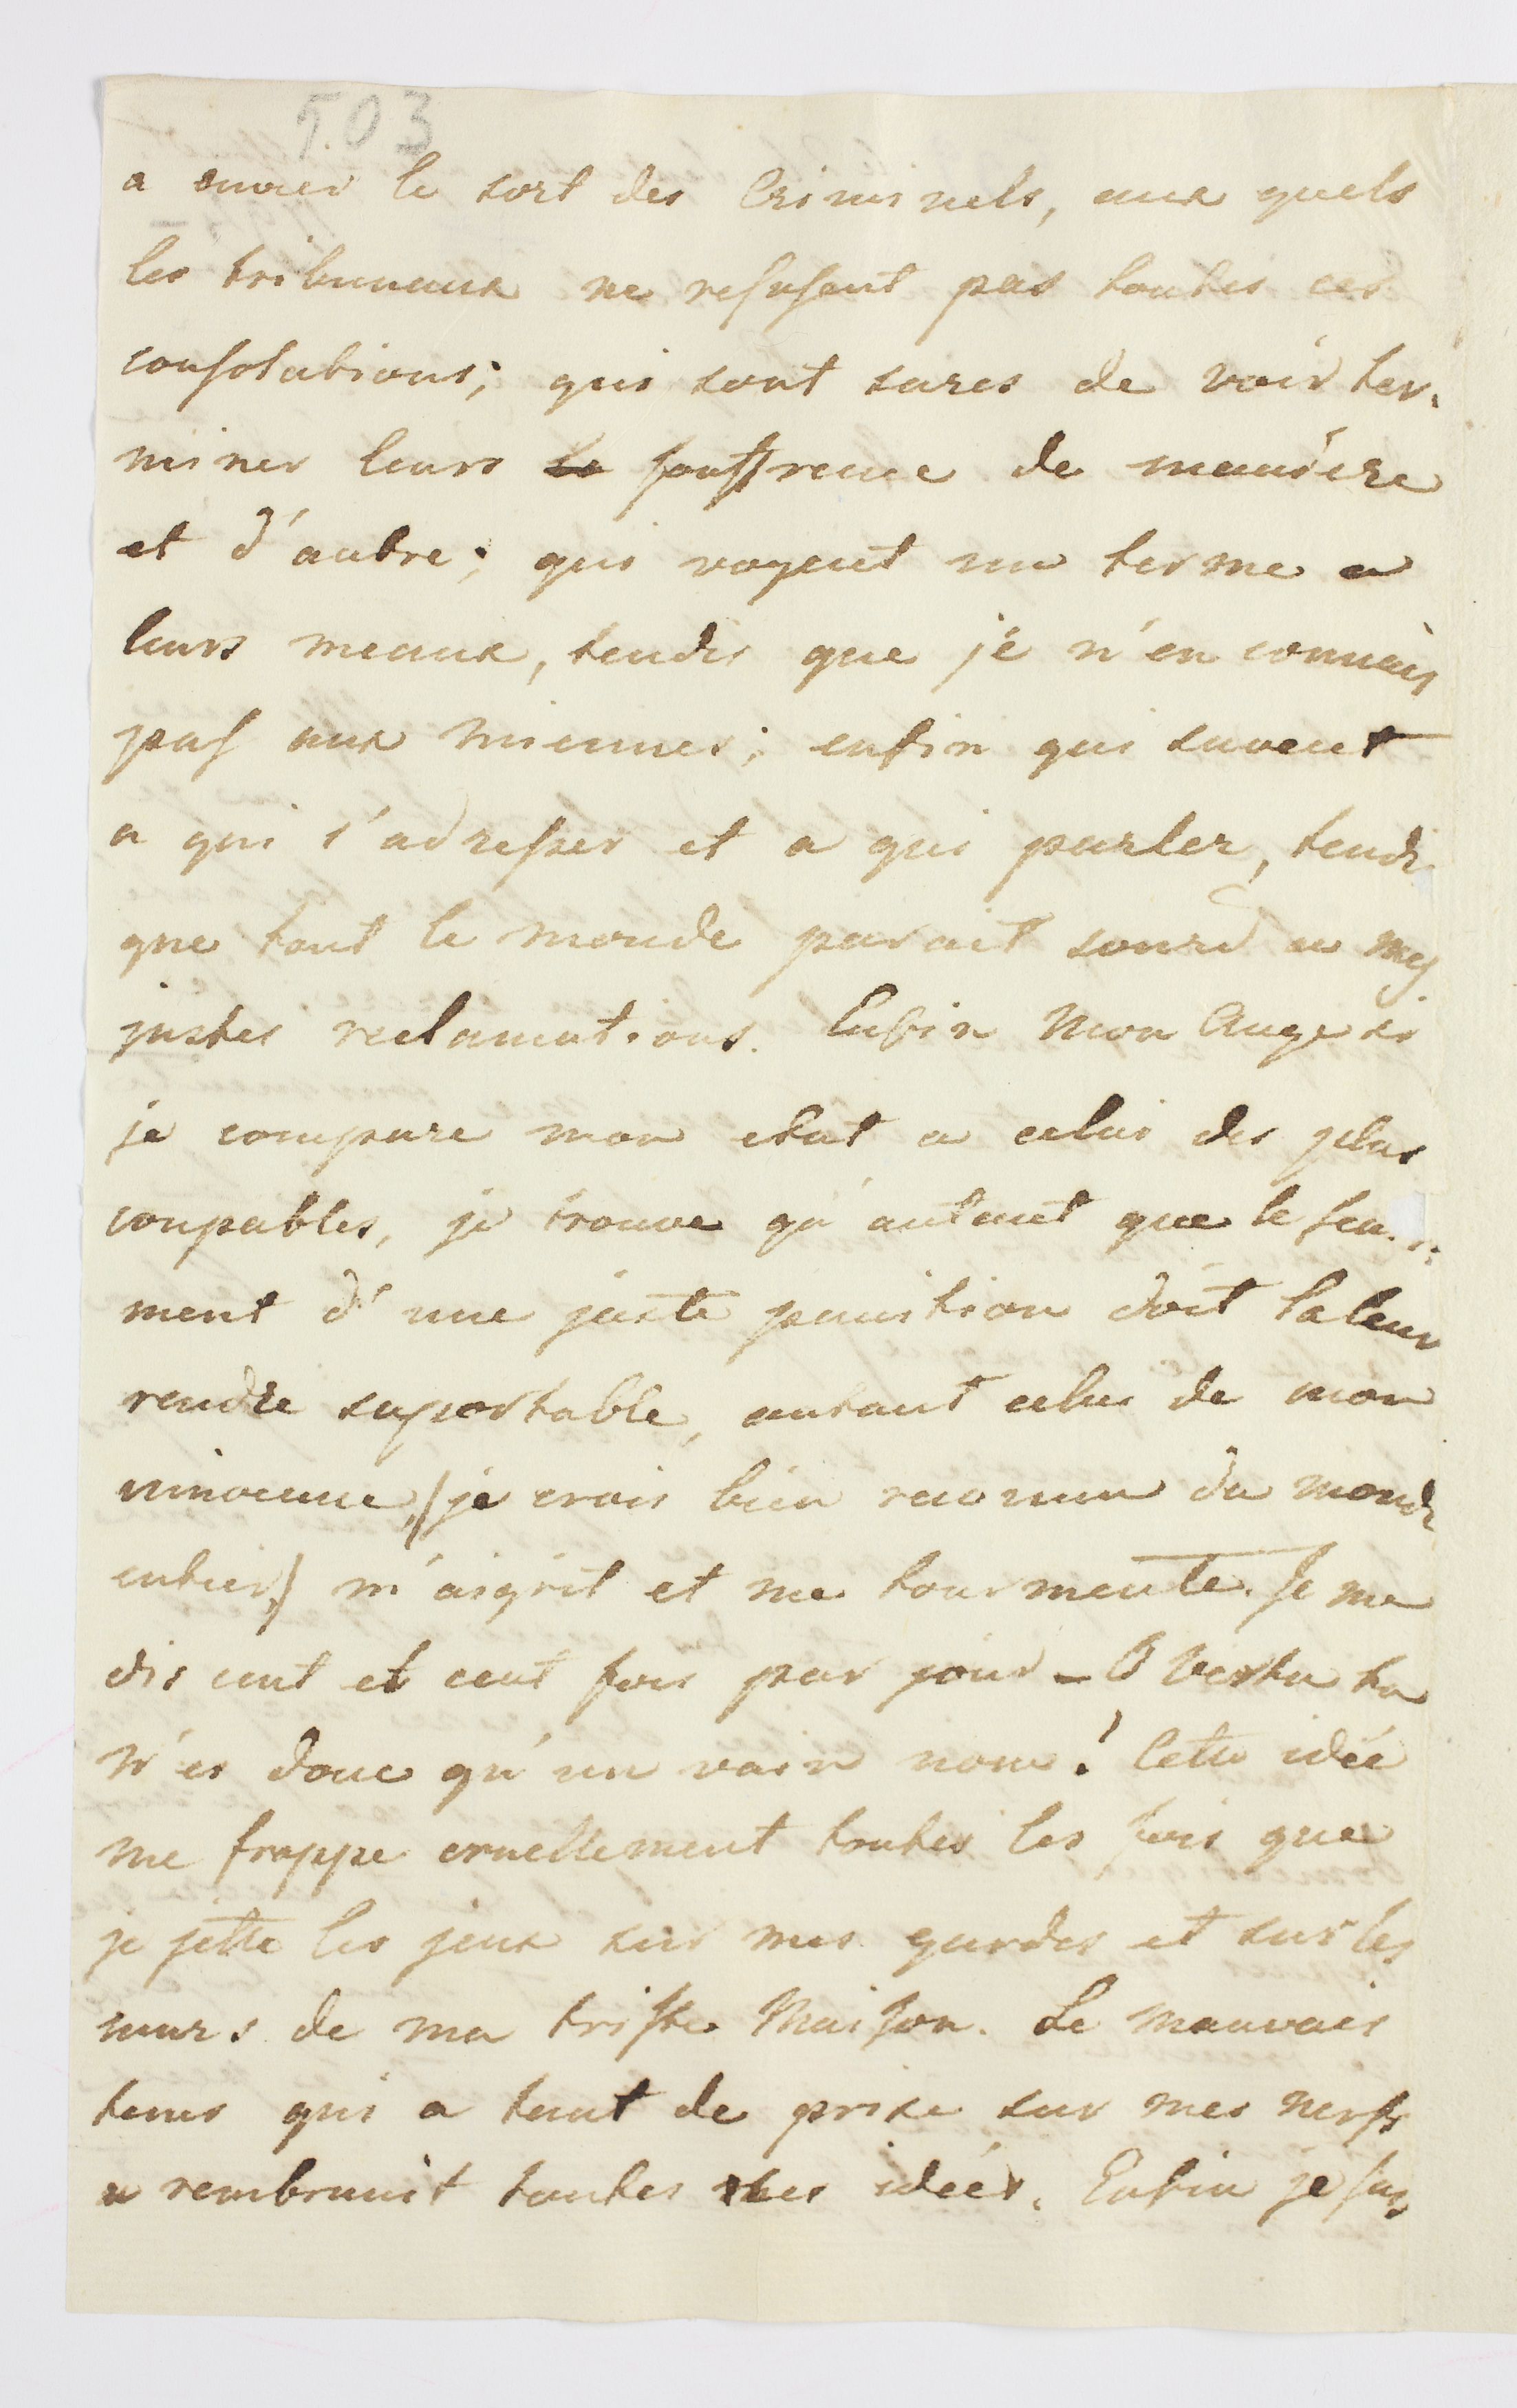 503
a envier le sort des Criminels, aux quels
les tribunaux ne refusent pas toutes ces
consolations; qui sont sures de voir ter-
miner leurs souffrence de manière
et d'autre; qui voyent un terme a
leurs meaux, tendis que je n'en connais
pas aux miennes; enfin qui savent
a qui s'adresser et a qui parler, tendis
que tout le monde parait sourd a mes
justes reclamations. Enfin Mon Ange si
je compare mon etat a celui des plus
coupables, je trouve qu'autant que le
ment d'une juste punition doit la leur
rendre suportable, autant celui de mon
innocence, (je crois bien reconnu du monde
entier) m'aigrit et me tourmente. Je me
dis cent et cent fois par jour - O Vertu tu
n'es donc qu'un vain nom! Cette idée
me frappe cruellement toutes les fois que
je jette les jeux sur mes gardes et sur les
murs de ma triste Maison. Le mauvais
tems qui a tant de prise sur mes nerfs
a rembrunit toutes mes idées. Enfin je suis